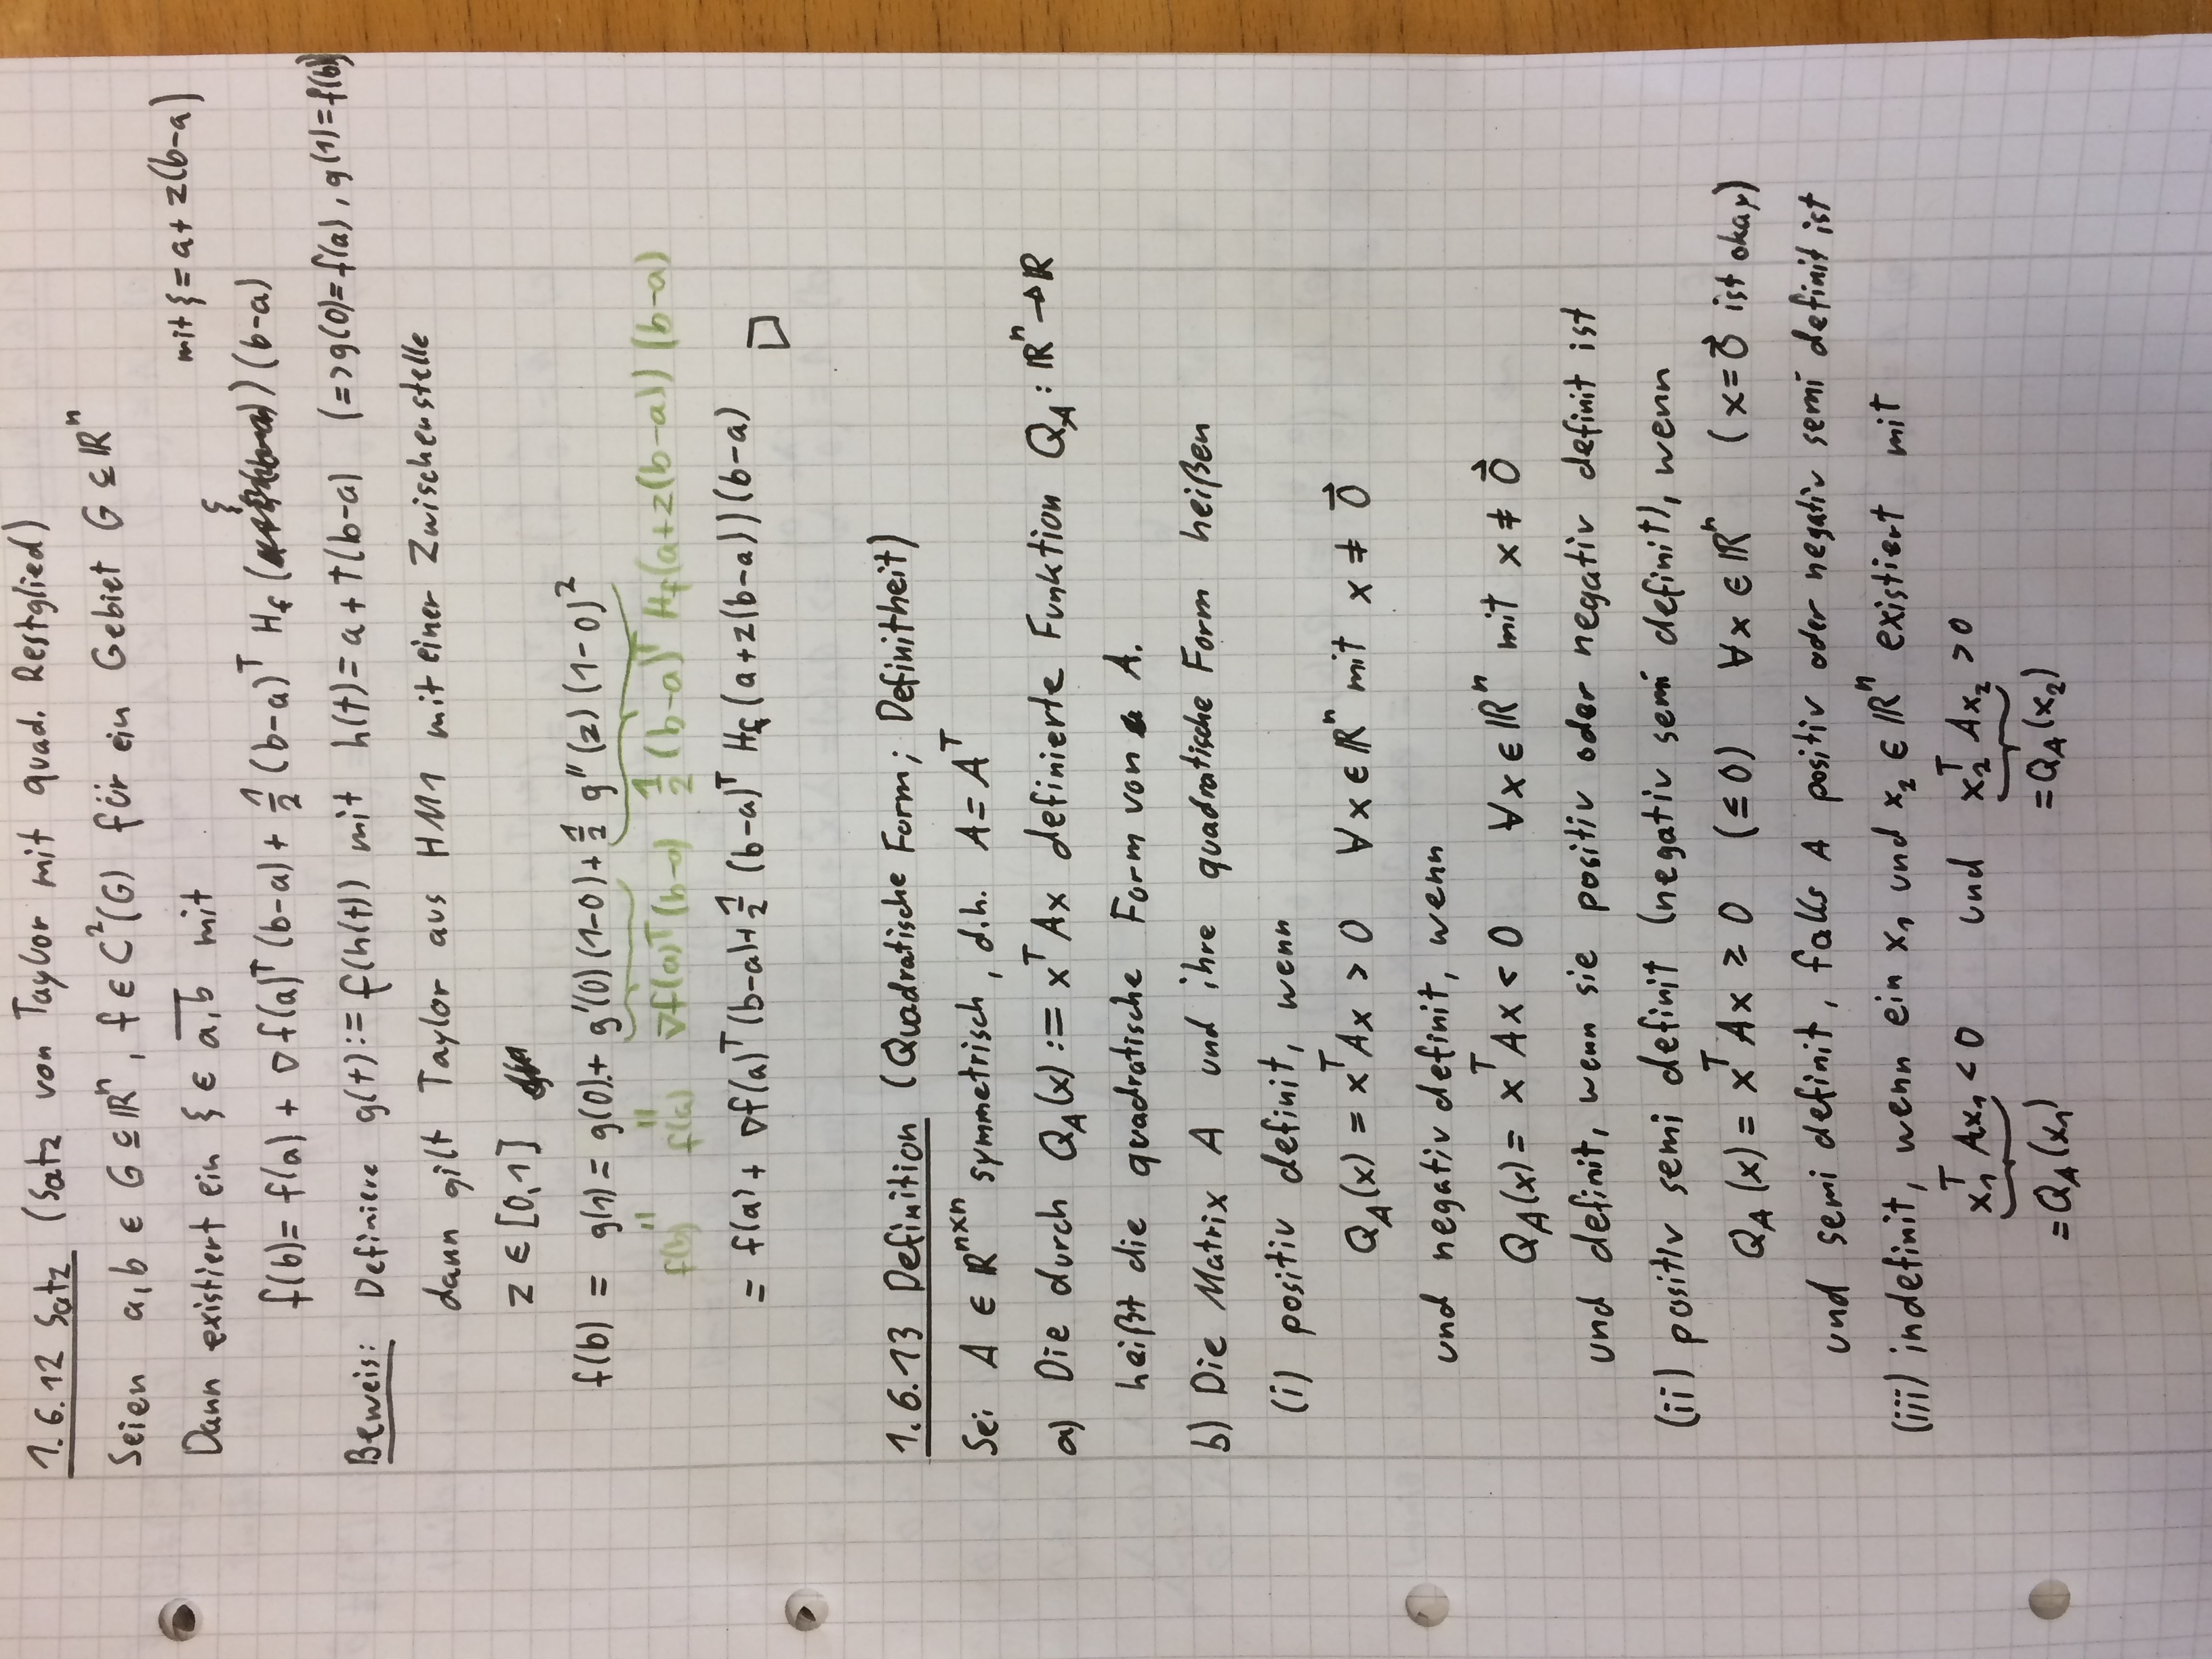 1.6.12 Satz (Satz von Taylor mit quad. Restglied)
Seien a,b ∈ G ⊆ ℝⁿ, f ∈ C²(G) für ein Gebiet G ⊆ ℝⁿ
Dann existiert ein ξ ∈ a,b mit mit ξ = a + z(b-a)
f(b) = f(a) + ∇f(a)ᵀ (b-a) + 1/2 (b-a)ᵀ H_f (ξ) (b-a)
Beweis: Definiere g(t) := f(h(t)) mit h(t) = a + t(b-a) (=> g(0) = f(a), g(1) = f(b))
dann gilt Taylor aus HM1 mit einer Zwischenstelle
z ∈ [0,1]
f(b) = g(1) = g(0) + g'(0) (1-0) + 1/2 g''(z) (1-0)²
f(b) f(a) ∇f(a)ᵀ (b-a) 1/2 (b-a)ᵀ H_f(a+z(b-a)) (b-a)
= f(a) + ∇f(a)ᵀ (b-a) + 1/2 (b-a)ᵀ H_f (a+z(b-a)) (b-a) □
1.6.13 Definition (Quadratische Form; Definitheit)
Sei A ∈ ℝⁿˣⁿ symmetrisch, d.h. A = Aᵀ
a) Die durch Q_A(x) := xᵀ Ax definierte Funktion Q_A : ℝⁿ → ℝ
heißt die quadratische Form von A.
b) Die Matrix A und ihre quadratische Form heißen
(i) positiv definit, wenn
Q_A(x) = xᵀAx > 0 ∀x ∈ ℝⁿ mit x ≠ 0⃗
und negativ definit, wenn
Q_A(x) = xᵀAx < 0 ∀x ∈ ℝⁿ mit x ≠ 0⃗
und definit, wenn sie positiv oder negativ definit ist
(ii) positiv semi definit (negativ semi definit), wenn
Q_A(x) = xᵀ Ax ≥ 0 (≤ 0) ∀x ∈ ℝⁿ (x = 0⃗ ist okay)
und semi definit, falls A positiv oder negativ semi definit ist
(iii) indefinit, wenn ein x₁ und x₂ ∈ ℝⁿ existiert mit
x₁ᵀ Ax₁ < 0 und x₂ᵀ Ax₂ > 0
= Q_A(x₁) = Q_A(x₂)